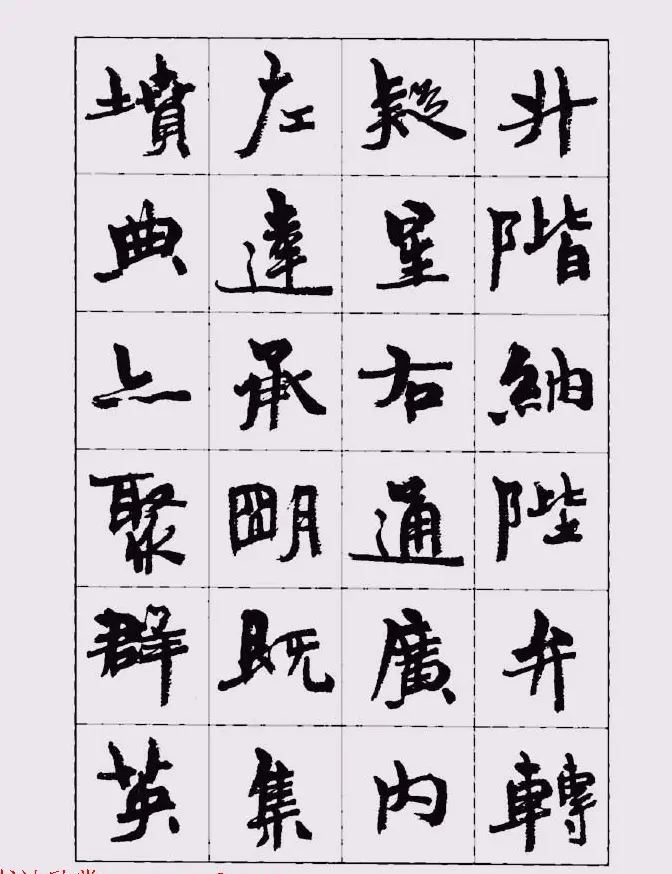 升階納陛弁轉
疑星右通廣内
左達承明既集
墳典亦聚群英